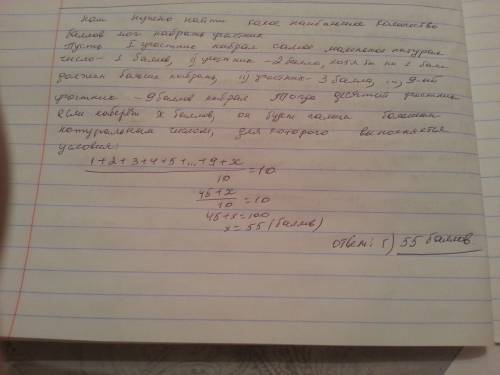 Нам нужно найти какое наибольшее количество
баллов мог набрать участник
Пусть I участник набрал самое маленькое натурал.
число - 1 баллов, II участник - 2 балла, хотя бы на 1 балл
должен больше набрать, III участник - 3 балла, ..., 9-ый
участник - 9 баллов набрал. Тогда десятый участник
если наберёт x баллов, он будет самым большим
натуральным числом, для которого выполняется
условия:
1+2+3+4+5+...+9+x
/10 = 10
45+x
/10 = 10
45+x=100
x = 55 (баллов)
ответ: 5) 55 баллов